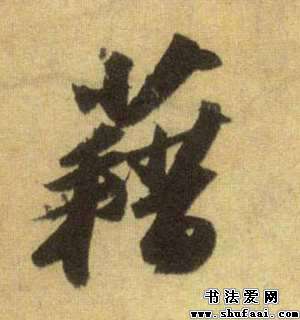 藉
书法爱网
www.shufaai.com